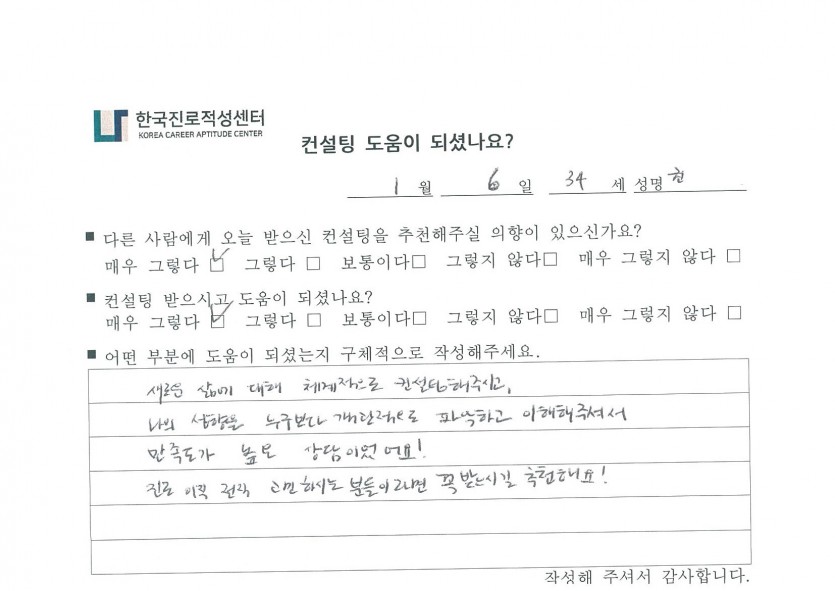 한국진로적성센터
KOREA CAREER APTITUDE CENTER
컨설팅 도움이 되셨나요?
1 월 6 일 34 세 성명 현
■ 다른 사람에게 오늘 받으신 컨설팅을 추천해주실 의향이 있으신가요?
매우 그렇다 ☑ 그렇다 □ 보통이다□ 그렇지 않다□ 매우 그렇지 않다 □
■ 컨설팅 받으시고 도움이 되셨나요?
매우 그렇다 ☑ 그렇다 □ 보통이다□ 그렇지 않다□ 매우 그렇지 않다 □
■ 어떤 부분에 도움이 되셨는지 구체적으로 작성해주세요.
새로운 삶에 대해 체계적으로 컨설팅해주시고,
나의 성향을 누구보다 객관적으로 파악하고 이해해주셔서
만족도가 높은 상담이었어요!
진로 이직 전직 고민하시는 분들이라면 꼭 받으시길 추천해요!
작성해 주셔서 감사합니다.